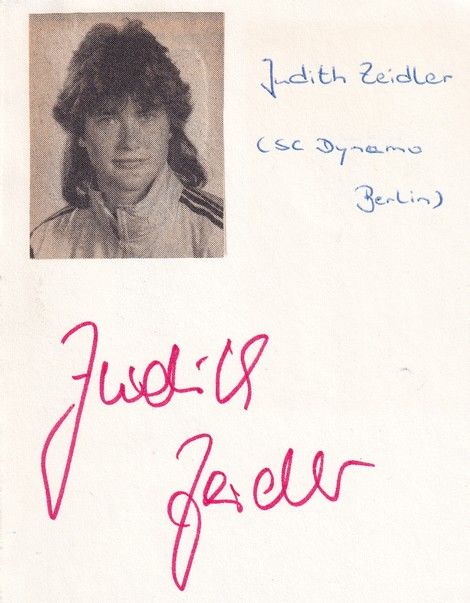 Judith Zeidler
(SC Dynamo
Berlin)
Judith
Zeidler